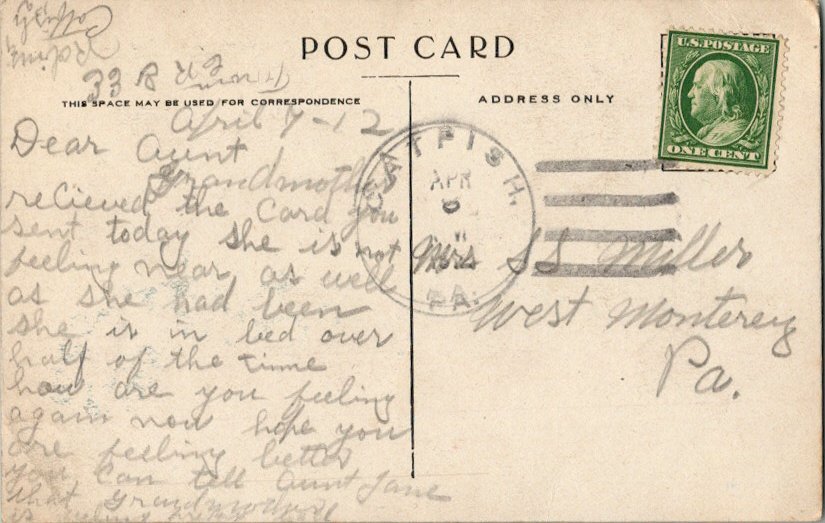 POST CARD
THIS SPACE MAY BE USED FOR CORRESPONDENCE
ADDRESS ONLY
U.S. POSTAGE
ONE CENT
CATFISH.
APR
PA.
April 7-12
Dear Aunt
Grandmother
recieved the Card you
sent today she is not
feeling near as well
as she had been
she is in bed over
half of the time
how are you feeling
again now hope you
are feeling better
you can tell Aunt Jane
that Grandmother
is
Mrs SS Miller
West Monterey
Pa.
From